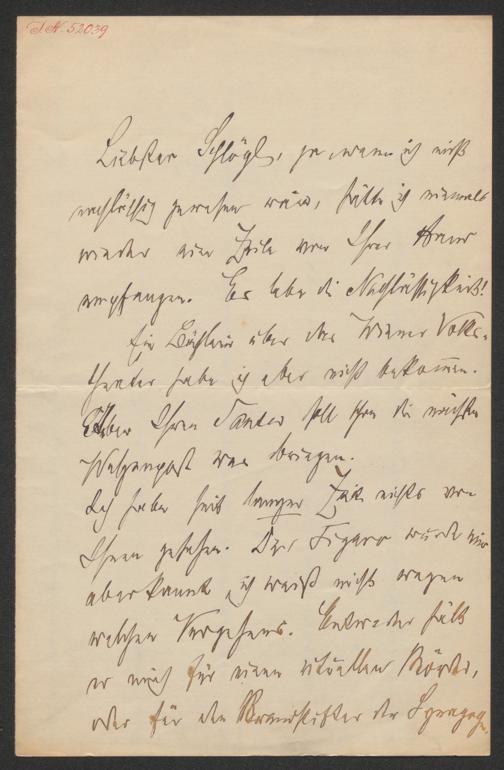 J. N. 52039
Liebster Schlögl, ja, wenn ich nicht
nachlässig gewesen wäre, hätte ich niemals
wieder eine Zeile von Ihrer Hand
empfangen. Es lebe die Nachlässigkeit!
Ein Büchlein über das Wiener Volks-
theater habe ich aber nicht bekommen.
Über Ihren soll schon die nächste
was bringen.
Ich habe seit langer Zeit nichts von
Ihnen gesehen. Der Figaro wurde mir
aberkannt, ich weiß nicht wegen
welchen Vergehens. Entweder hält
er mich für einen rituellen Mörder,
oder für den Brandstifter der Synagoge.